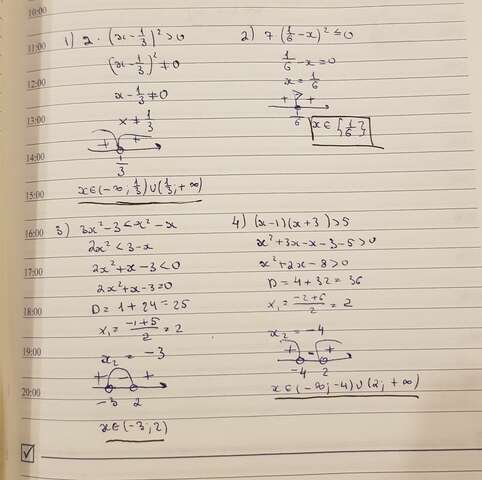 10:00
11:00
12:00
13:00
14:00
15:00
16:00
17:00
18:00
19:00
20:00
1) 2·(x-1/3)²>0
(x-1/3)²≠0
x-1/3≠0
x≠1/3
+ +
1/3
x∈(-∞;1/3)∪(1/3;+∞)
2) 7·(1/6-x)²≤0
1/6-x=0
x=1/6
+ +
1/6
x∈{1/6}
3) 3x²-3<x²-x
2x²<3-x
2x²+x-3<0
2x²+x-3=0
D=1+24=25
x₁=(-1+5)/2=2
x₂=-3
+ - +
-3 2
x∈(-3;2)
4) (x-1)(x+3)>5
x²+3x-x-3-5>0
x²+2x-8>0
D=4+32=36
x₁=(-2+6)/2=2
x₂=-4
+ - +
-4 2
x∈(-∞;-4)∪(2;+∞)